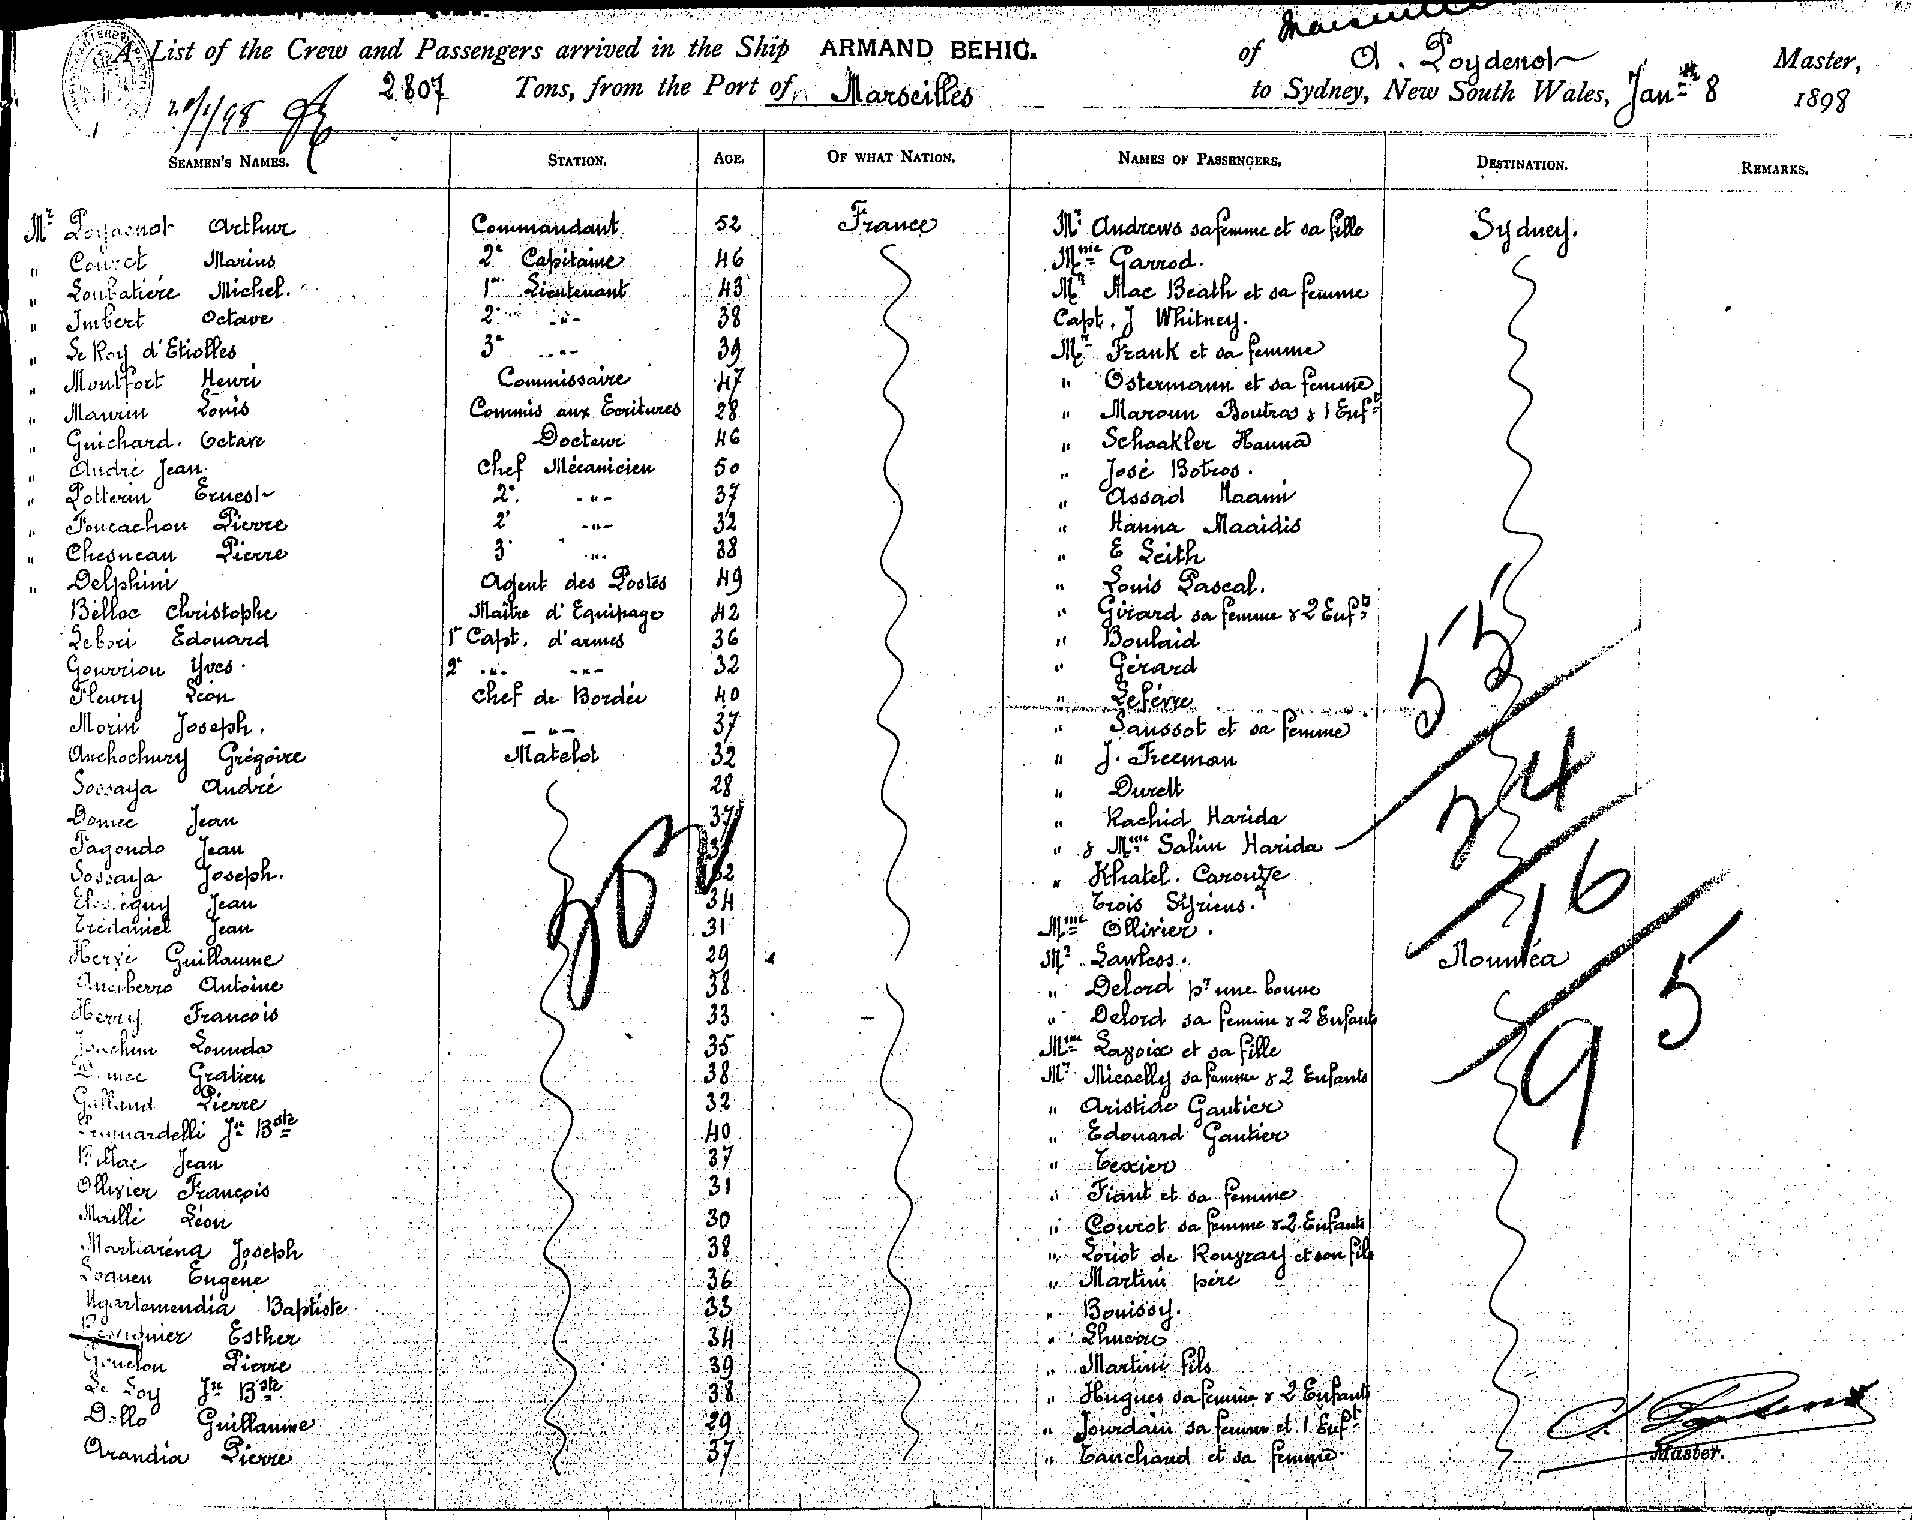 Marseille
A List of the Crew and Passengers arrived in the Ship ARMAND BEHIC. of A. Poydenot Master,
2807 Tons, from the Port of Marseilles to Sydney, New South Wales, Janry 8 1898
20/1/98
SEAMEN'S NAMES. STATION. AGE. OF WHAT NATION. NAMES OF PASSENGERS. DESTINATION. REMARKS.
Mr Poydenot Arthur Commandant 52 France Mr Andrews sa femme et sa fille Sydney.
" Couret Marius 2e Capitaine 46 Mme Garrod.
" Loubatière Michel. 1er Lieutenant 43 Mr Mac Beath et sa femme
" Imbert Octave 2e -"- 38 Capt. J Whitney.
" Le Roy d'Etiolles 3e -"- 39 Mr Frank et sa femme
" Montfort Henri Commissaire 47 " Ostermann et sa femme
" Maurin Louis Commis aux Ecritures 28 " Maroun Boutros & 1 Enft
" Guichard. Octave Docteur 46 " Schoakler Hanna
" André Jean. Chef Mécanicien 50 " José Botros.
" Potterin Ernest 2e. -"- 37 " Assad Naami
" Foucachon Pierre 2e -"- 32 " Hanna Maaidis
" Chesneau Pierre 3e -"- 38 " E Leith
" Delphini Agent des Postes 49 " Louis Pascal.
Bellac Christophe Maître d'Equipage 42 " Girard sa femme & 2 Enfts
Lebori Edouard 1er Capt. d'armes 36 " Boulaid
Gourriou Yves. 2e -"- -"- 32 " Gérard
Fleury Léon Chef de Bordée 40 " Lefévre
Morin Joseph. -"- 37 " Saussot et sa femme
Anchochury Grégoire Matelot 32 " J. Freeman
Sossaya André 28 " Durett
Domec Jean 37 " Rachid Harida
Fagondo Jean " & Mme Salim Harida
Sossaya Joseph. 32 " Khatel. Carouze
Jean 34 Trois Syriens.
Tredaniel Jean 31 Mme Ollivier.
Hervé Guillaume 29 Mr Lawless. Nouméa
Anciberro Antoine 38 " Delord pr une bonne
Herry François 33 " Delord sa femme & 2 Enfants
Joachim Lounda 35 Mme Lazoix et sa fille
Gratien 38 Mr Micaelly sa femme & 2 Enfants
Galland Pierre 32 " Aristide Gautier
Jn Bste 40 " Edouard Gautier
Jean 37 " Texier
Ollivier François 31 " Fiant et sa femme
Léon 30 " Courot sa femme & 2 Enfants
Martiaréna Joseph 38 " Loriot de Rouvray et son fils
Loquen Eugène 36 " Martini père
Ugartemendia Baptiste 33 " Bouissy.
Esther 34 "
Gouclou Pierre 39 " Martini fils
Le Loy Jn Bste 38 " Hugues sa femme & 2 Enfants
Dollo Guillaume 29 " Jourdain sa femme et 1 Enft
Arandia Pierre 37 " Tanchand et sa femme
53
24
16
95
A. Poydenot
Master.